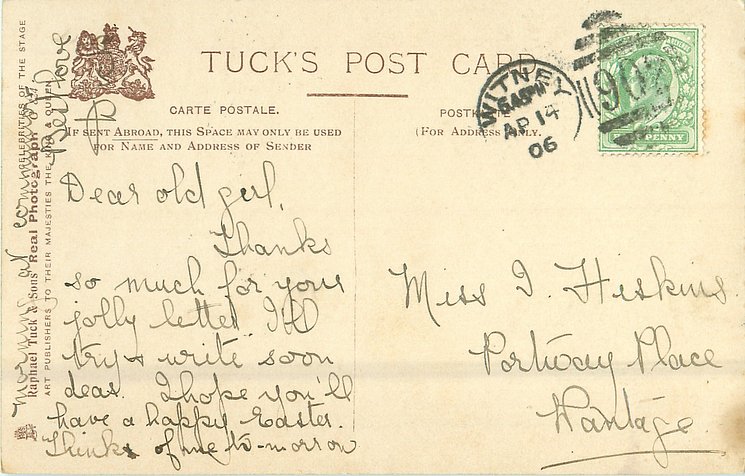 TUCK'S POST CARD
CARTE POSTALE.
POSTKARTE
IF SENT ABROAD, THIS SPACE MAY ONLY BE USED
FOR NAME AND ADDRESS OF SENDER
(FOR ADDRESS ONLY.
WITNEY
AP 14
06
907
PENNY
Dear old girl,
Thanks
so much for your
jolly letter I'll
try & write soon
dear. I hope you'll
have a happy Easter.
Think of me to-morrow
morning at
Best love
Miss I. Hiskins.
Portway Place
Wantage
CELEBRITIES OF THE STAGE
Raphael Tuck & Sons' Real Photograph
ART PUBLISHERS TO THEIR MAJESTIES THE KING & QUEEN